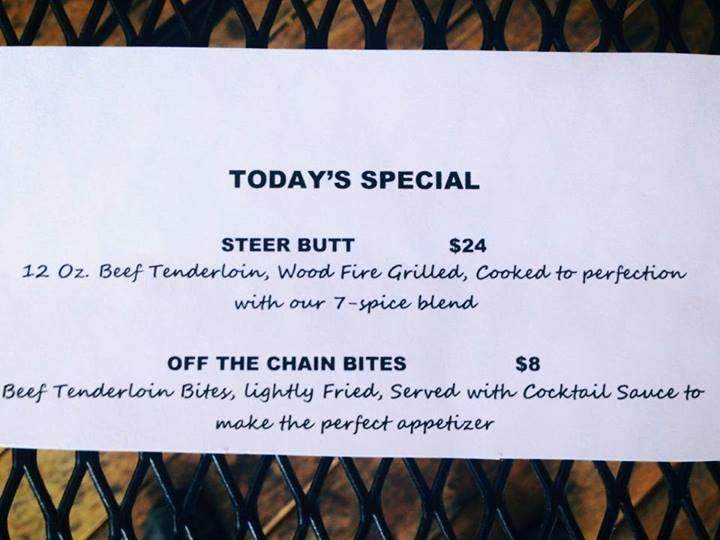 TODAY'S SPECIAL
STEER BUTT $24
12 Oz. Beef Tenderloin, Wood Fire Grilled, Cooked to perfection
with our 7-spice blend
OFF THE CHAIN BITES $8
Beef Tenderloin Bites, lightly Fried, Served with Cocktail Sauce to
make the perfect appetizer